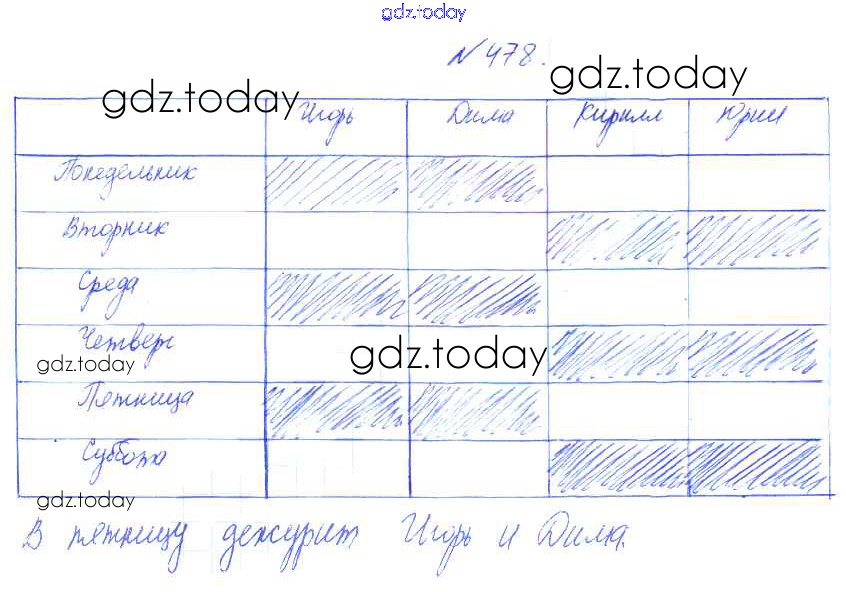 gdz.today
№ 478.
gdz.today
gdz.today
Игорь Дима Кирилл Юрий
Понедельник
Вторник
Среда
Четверг
gdz.today
gdz.today
Пятница
Суббота
gdz.today
В пятницу дежурит Игорь и Дима.